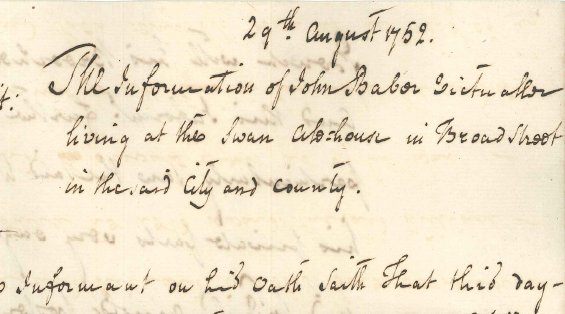 29th August 1752.
t: The Information of John Baber Victualler
living at the Swan Alehouse in Broad Street
in the said City and County.
Informant on his Oath Saith That this day-